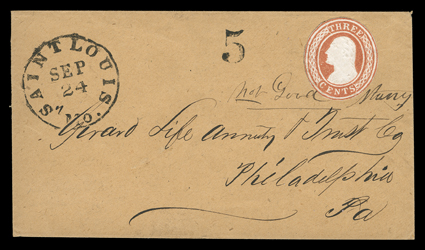 SAINT LOUIS Mo.
SEP
24
5
THREE
CENTS
Not Good
Girard Life Annuity & Trust Co
Philadelphia
Pa